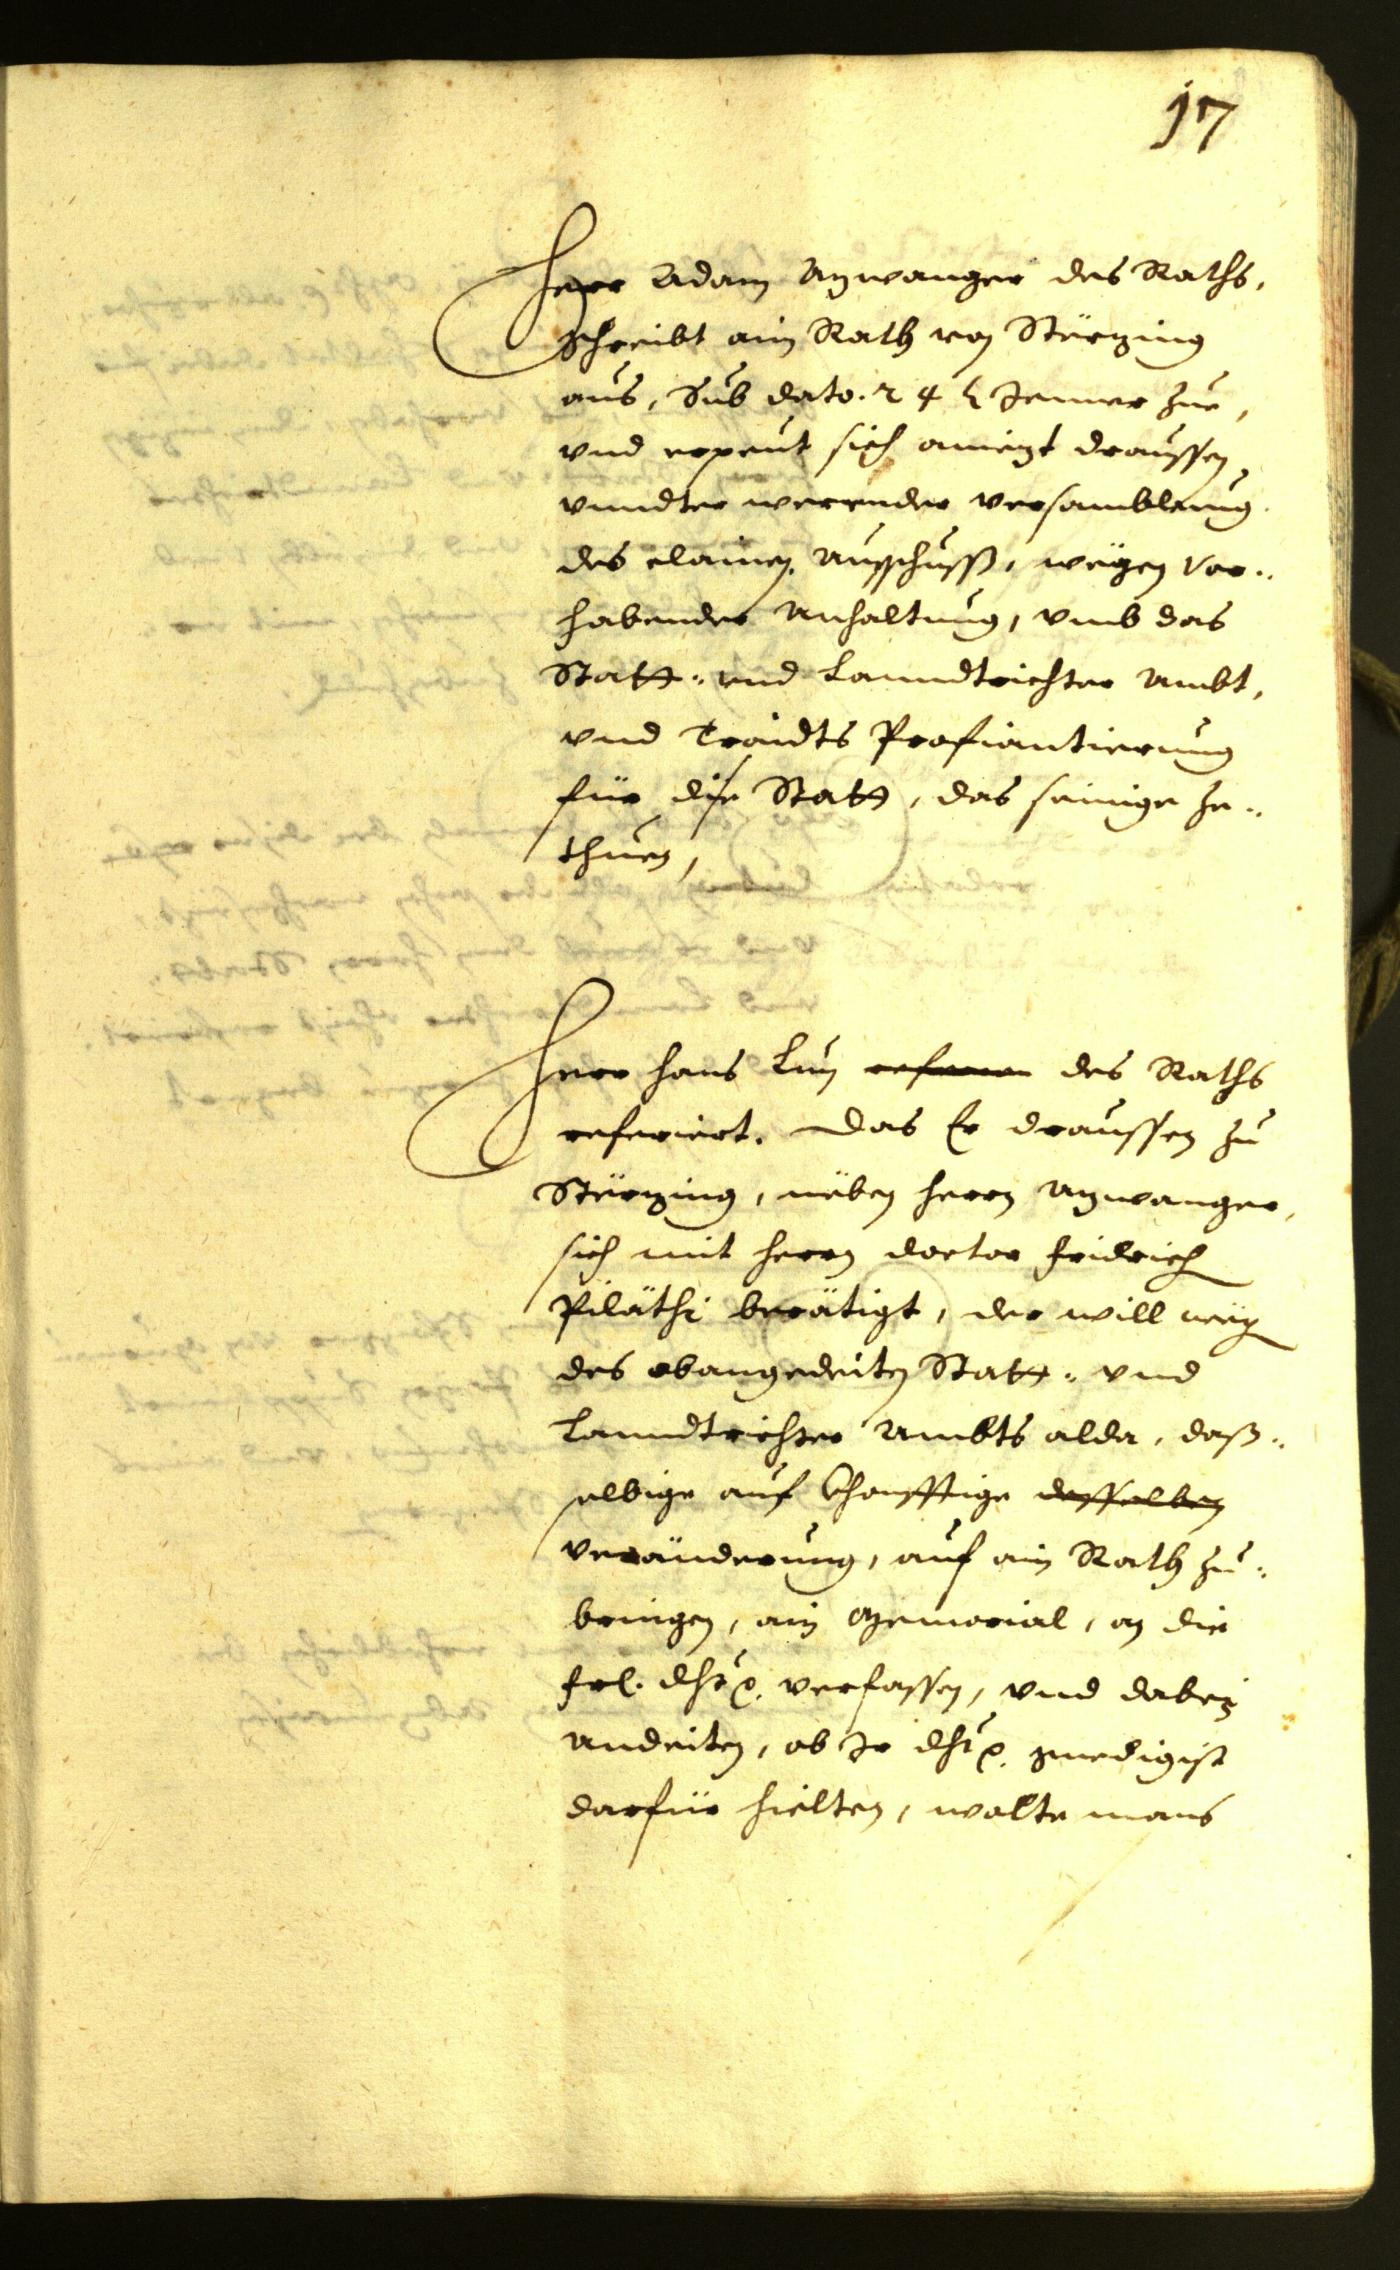 17
Herr Adam Anwanger des Raths,
schreibt ain Rath von Stërzing
aus, Sub dato. 24 Jenner zue,
vnd erpeut sich aniezt draussen
vnndter werender versamblung
des clainen Ausschuss, wëgen vor-
habender Anhaltung, vmb das
Statt- und Lanndtrichter Ambt,
vnd Traidts Profiantierung
für dise Statt, das seinige ze-
thuen,
Herr Hans Lun des Raths
referiert. Das Er draussen zu
Stërzing, nëben herrn Anwanger,
sich mit herrn doctor Fridrich
Piläthi berätigt, der will wëg
des obangedeiten Statt- vnd
Lanndtrichter Ambts alda, dass-
selbige auf khonfftige desselben
veränderung, auf ain Rath zu-
bringen, ain Memorial, an die
frl. dht. verfassen, vnd dabej
andeiten, ob Ir dht. gnedigist
darfür hielten, wolte mans